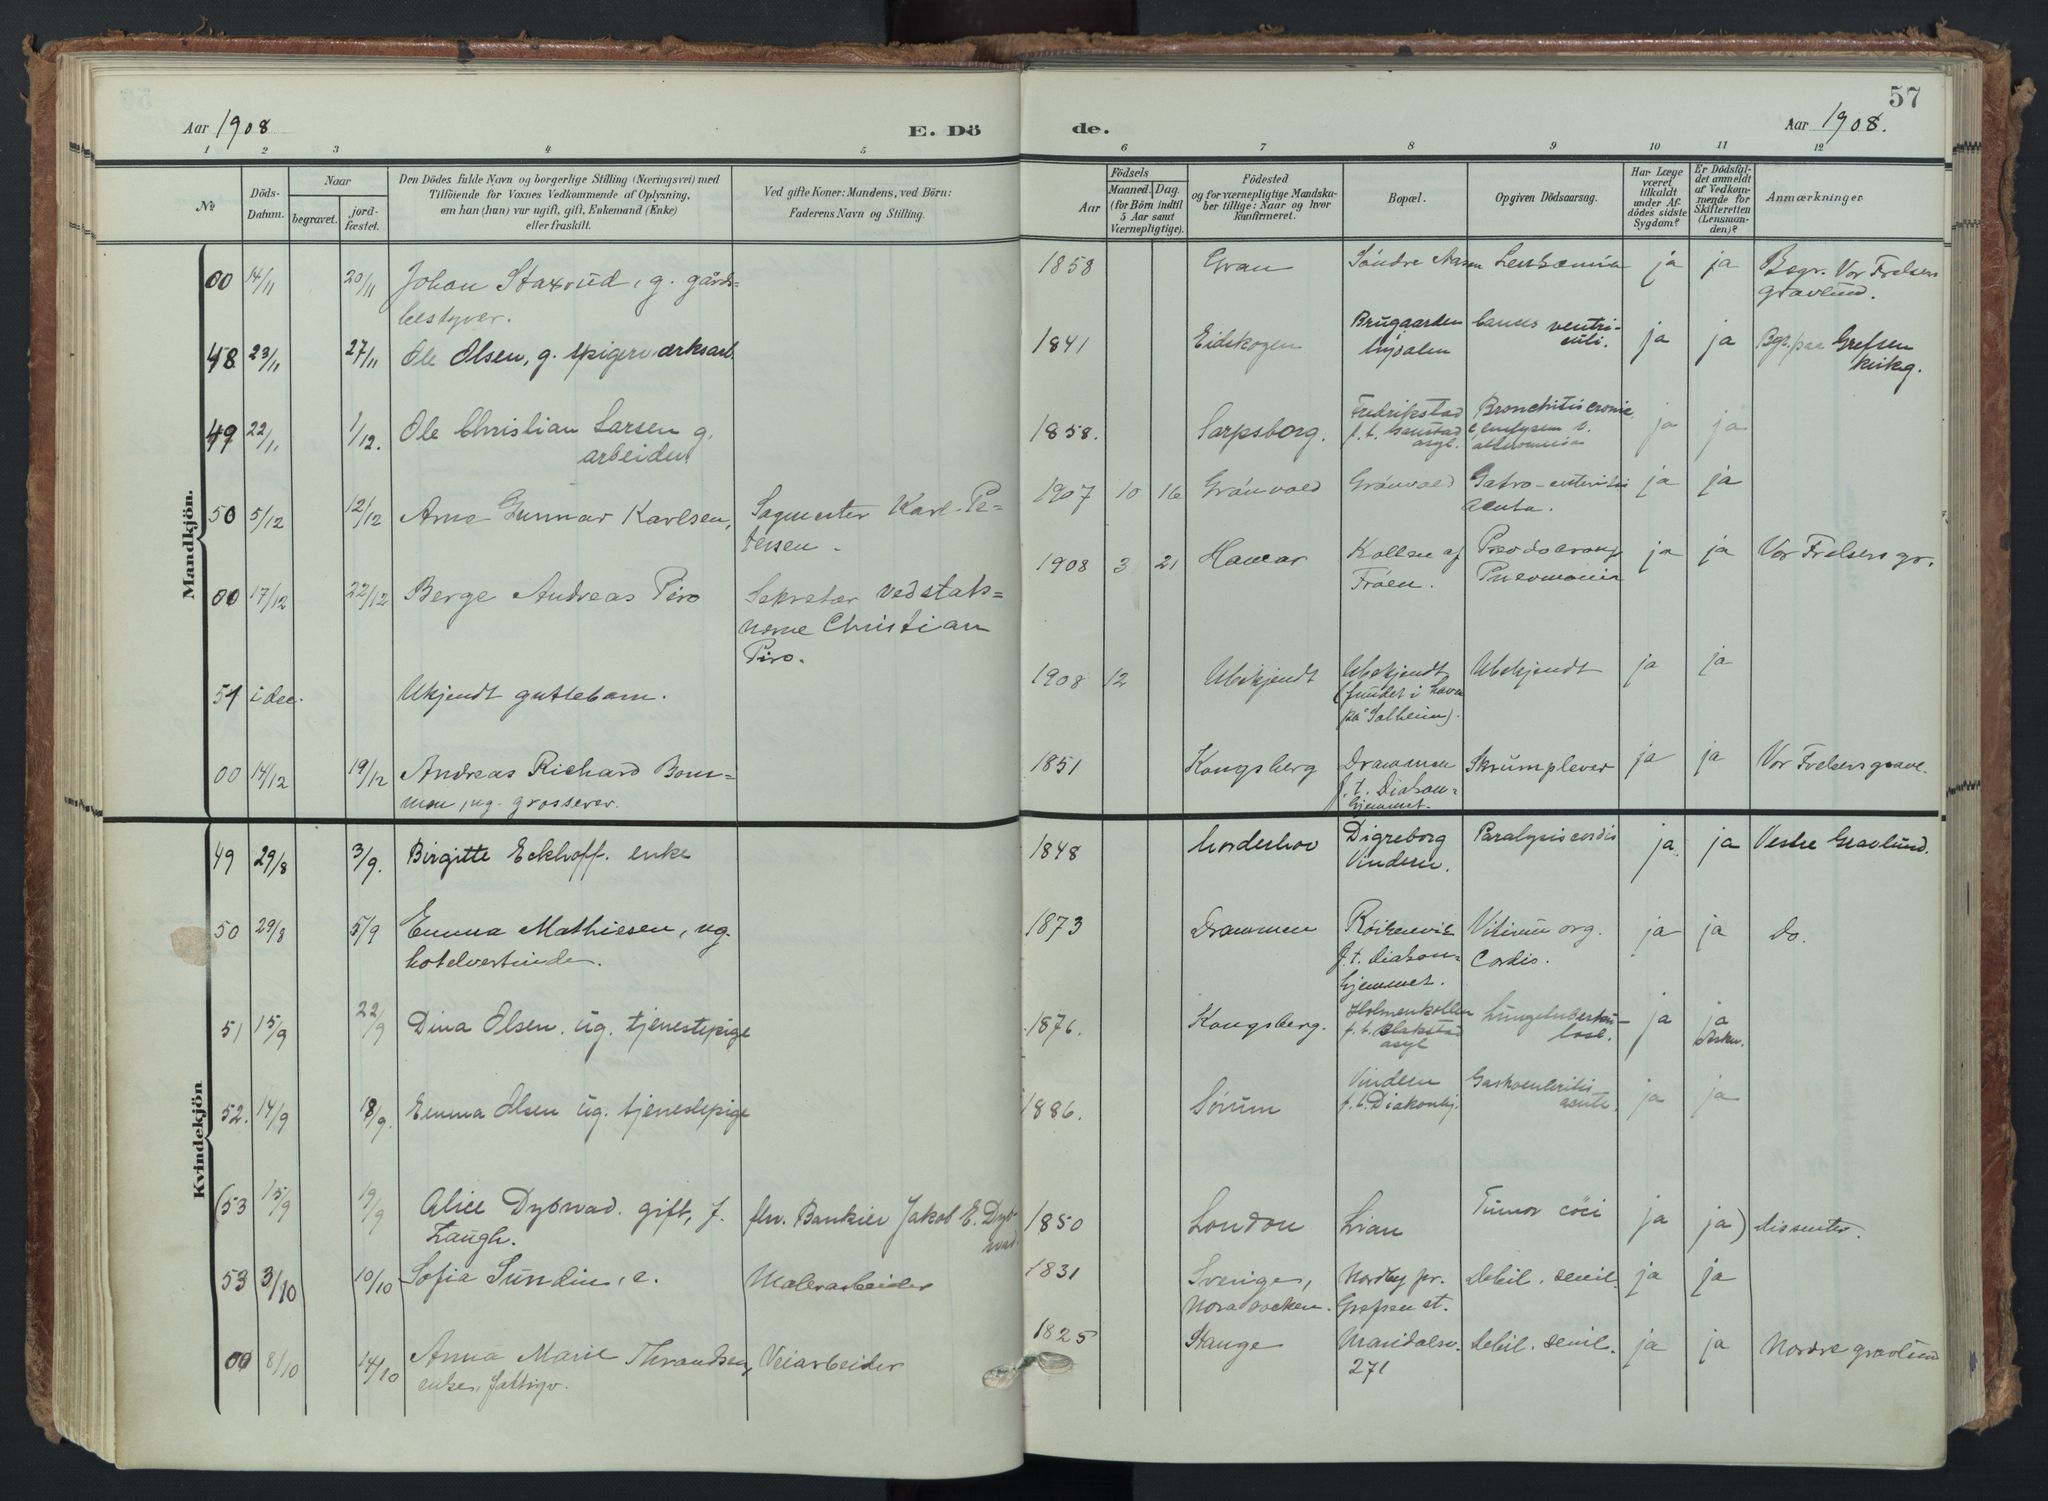 57
Aar 1908
E. Dö
de.
Aar 1908.
1 2 3 4 5 6 7 8 9 10 11 12
№
Döds-
Datum.
Naar
begravet.
jord-
fæstet.
Den Dödes fulde Navn og borgerlige Stilling (Næringsvei) med
Tilföiende for Voxnes Vedkommende af Oplysning,
om han (hun) var ugift, gift, Enkemand (Enke)
eller fraskilt.
Ved gifte Koner: Mandens, ved Börn:
Faderens Navn og Stilling.
Födsels
Aar
Maaned. Dag.
(for Börn indtil
5 Aar samt
Værnepligtige).
Födested
og for værnepligtige Mandska-
ber tillige: Naar og hvor
konfirmeret.
Bopæl.
Opgiven Dödsaarsag.
Har Læge
været
tilkaldt
under Af-
dödes sidste
Sygdom?
Er Dödsfal-
det anmeldt
af Vedkom-
mende for
Skifteretten
(Lensman-
den)?
Anmærkninger
Mandkjön.
00 14/11 20/11 Johan Staxrud, g. gårds-
bestyrer.
1858 Gran Söndre Aasen Leukæmia ja ja Begr. Vor Frelsers
gravlund.
48 23/11 27/11 Ole Olsen, g. spigerværksarb.
1841 Eidskogen Brugaarden
Nydalen
cances ventri-
culi.
ja ja Bgr. paa Grefsen
kirkeg.
49 22/1, 1/12. Ole Christian Larsen g.
arbeider.
1858. Sarpsborg. Fredrikstad
f. t. Gaustad
asyl.
Bronchitis cronic
ja ja
50 5/12 12/12 Arne Gunnar Karlsen, Sagmester Karl Pe-
tersen.
1907 10 16 Grönvold Grönvold Gatro-enteritis
acuta.
ja ja
00 17/12 22/12 Berge Andreas Piro Sekretær ved stats-
Christian
Piro.
1908 3 21 Hamar Kollen af
Fröen.
Pneomonia
ja ja Vor Frelsers gr.
51 i dec. Ukjendt guttebarn.
1908 12 Ubekjendt Ubekjendt
(fundet i
på Solheim).
Ubekjendt ja ja
00 14/12 19/12 Andreas Richard Bom-
men, ug. grosserer.
1851 Kongsberg Drammen
f. t. Diakon-
hjemmet.
Skrumplever ja ja Vor Frelsers grave.
Kvindekjön.
49 29/8 3/9. Birgitte Eckhoff. enke
1848 Norderhov Digreborg
Vindern.
Paralysis cordis ja ja Vestre Gravlund.
50 29/8 5/9 Emma Mathiesen, ug.
hotelvertinde.
1873 Drammen Röikenvik
f. t. diakon-
hjemmet.
Vitium org.
Cordis.
ja ja do.
51 15/9 22/9 Dina Olsen. ug. tjenestepige
1876. Kongsberg. Holmenkollen
f. t. Blakstad
asyl
Lungetuberku-
lose.
ja ja
52. 14/9 18/9. Emma Olsen ug. tjenestepige
1886. Sörum Vindern
f. t. Diakonhj.
Gastroenteritis
acute.
ja ja
(53 15/9 19/9 Alice Dybwad. gift, f.
Zaugh.
fhv. Bankier Jakob E. Dyb-
wad.
1850 London Lian Tumor cöci ja ja) dissenter.
53 3/10 10/10 Sofia Sundin, e. Malerarbeider
1831 Sverige,
Nora socken.
Nordby pr.
Grefsen st.
debil. senil. ja ja
00 8/10 14/10 Anna Marie Thrandsen, Veiarbeider
enke, fattigv.
1825 Stange Maridalsv.
271
debil. senil. ja ja Nordre gravlund